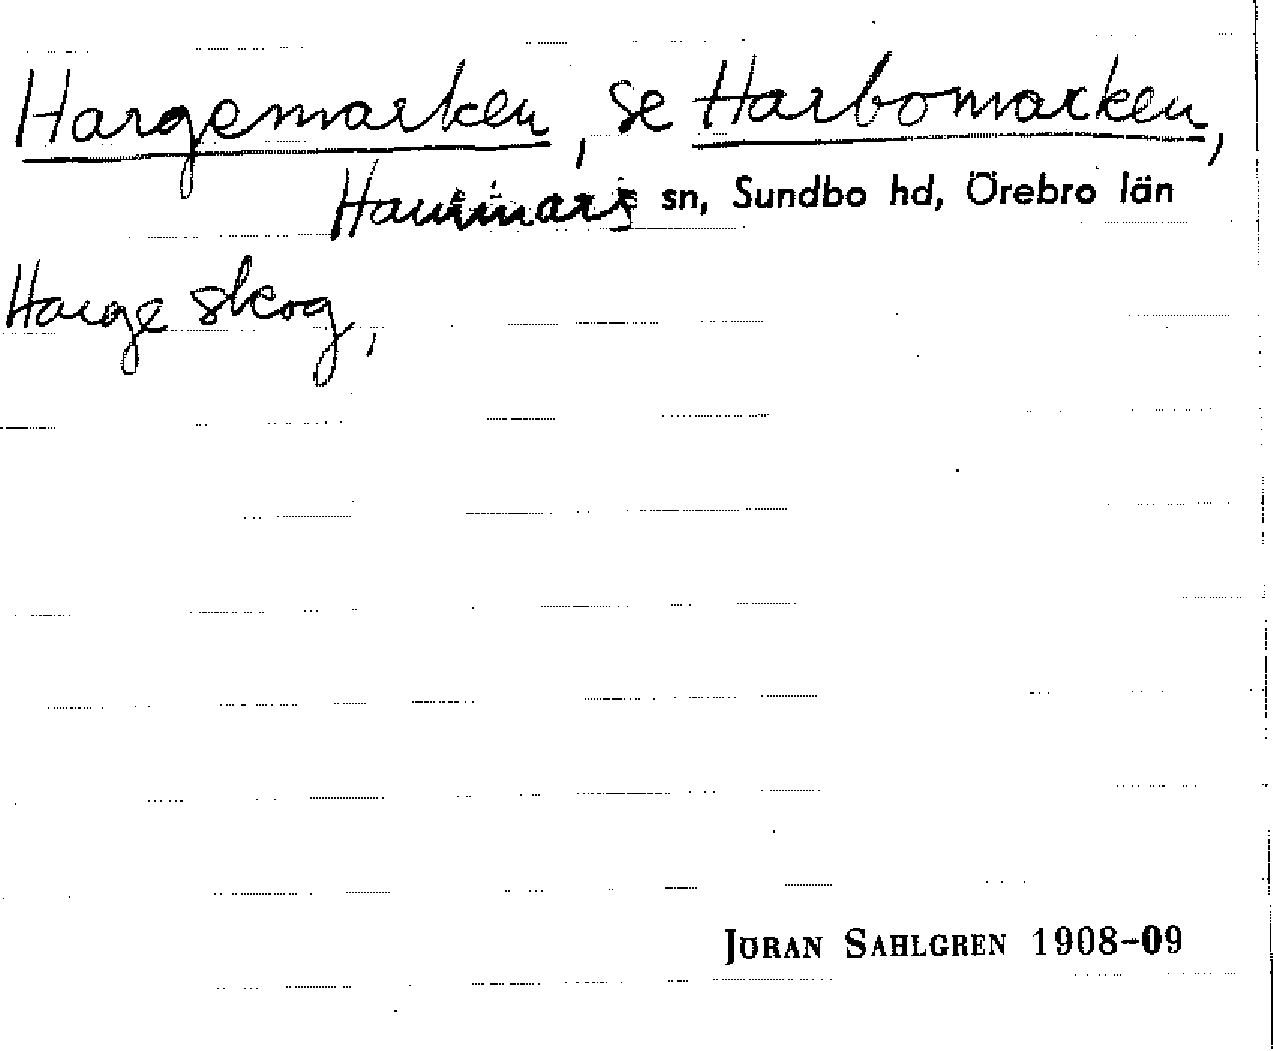 Hargemarken, se Harbomarken,
Hammars sn, Sundbo hd, Örebro län
Harge skog,
JÖRAN SAHLGREN 1908-09